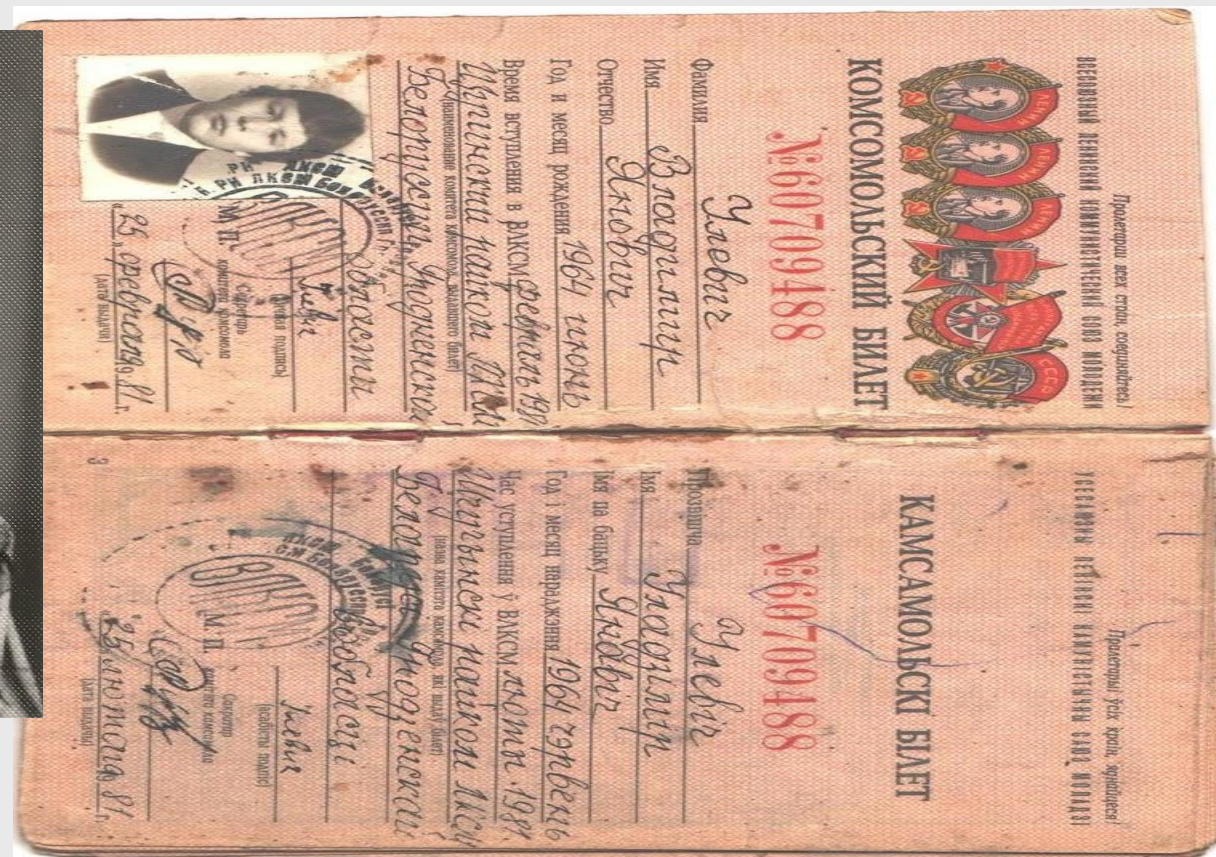 Пролетарии всех стран, соединяйтесь!
ВСЕСОЮЗНЫЙ ЛЕНИНСКИЙ КОММУНИСТИЧЕСКИЙ СОЮЗ МОЛОДЕЖИ
КОМСОМОЛЬСКИЙ БИЛЕТ
№60709488
Фамилия Улевич
Имя Владимир
Отчество Янович
Год и месяц рождения 1964 июнь
Время вступления в ВЛКСМ февраль 1981
Щучинский райком ЛКСМ
(наименование комитета комсомола, выдавшего билет)
Белоруссии, Гродненской
области
Улевич
(личная подпись)
Секретарь
комитета комсомола
М П.
„25„ февраля 1981 г.
(дата выдачи)
Пралетарыі ўсіх краін, яднайцеся!
УСЕСАЮЗНЫ ЛЕНІНСКІ КАМУНІСТЫЧНЫ САЮЗ МОЛАДЗІ
КАМСАМОЛЬСКІ БІЛЕТ
№60709488
Прозвішча Улевіч
Імя Уладзімір
Імя па бацьку Янавіч
Год і месяц нараджэння 1964 чэрвень
Час уступлення ў ВЛКСМ люты 1981
Шчучынскі райком ЛКСМ
(назва камітэта камсамола, які выдаў білет)
Беларусі, Гродзенскай
вобласці
Улевич
(асабісты подпіс)
Сакратар
камітэта камсамола
М П.
„25„ лютага 1981 г.
(дата выдачы)
3